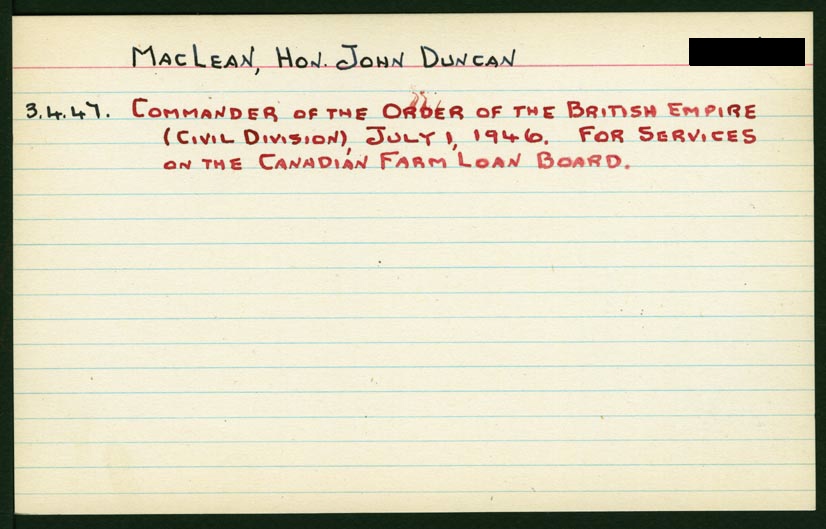 MACLEAN, HON. JOHN DUNCAN
3.4.47. COMMANDER OF THE ORDER OF THE BRITISH EMPIRE
(CIVIL DIVISION), JULY 1, 1946. FOR SERVICES
ON THE CANADIAN FARM LOAN BOARD.